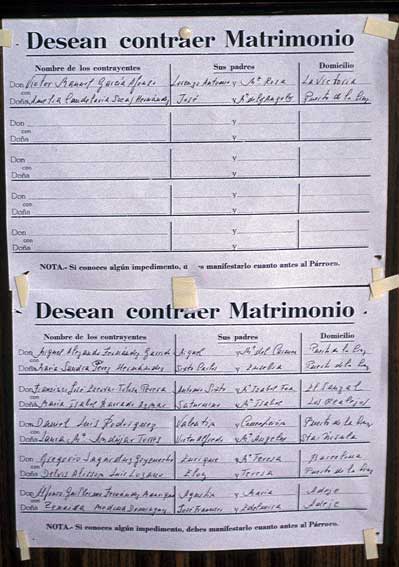 Desean contraer Matrimonio
Nombre de los contrayentes Sus padres Domicilio
Don Victor Manuel García Afonso Lorenzo Antonio y Mª Rosa La Victoria
con
Doña Amelia Candelaria Sosa Hernández José y Mª de los Angeles Puerto de la Cruz
Don y
con
Doña y
Don y
con
Doña y
Don y
con
Doña y
Don y
con
Doña y
NOTA.- Si conoces algún impedimento, manifestarlo cuanto antes al Párroco.
Desean contraer Matrimonio
Nombre de los contrayentes Sus padres Domicilio
Don Miguel Alejandro Fernández Garrido Miguel y Mª del Carmen Puerto de la Cruz
con
Doña María Sandra Hernández Sixto Carlos y Eusebia Puerto de la Cruz
Don Francisco José Antonio Sixto y Mª Isabel
con
Doña María Isabel Saturnino y Mª Isabel Los Realejos
Don Daniel Luis Rodríguez Valentín y Concepción Puerto de la Cruz
con
Doña Laura Mª Andújar Torres Victor Alfredo y Mª Angeles Sta. Ursula
Don Gregorio Enrique y Mª Teresa Barcelona
con
Doña Delvis Alissón Luis Lozano Eloy y Teresa Puerto de la Cruz
Don Alfonso Guillermo Fernández Manrique Agustín y María Adeje
con
Doña Zenaida Medina Domínguez José Francisco y Adeje
NOTA.- Si conoces algún impedimento, debes manifestarlo cuanto antes al Párroco.